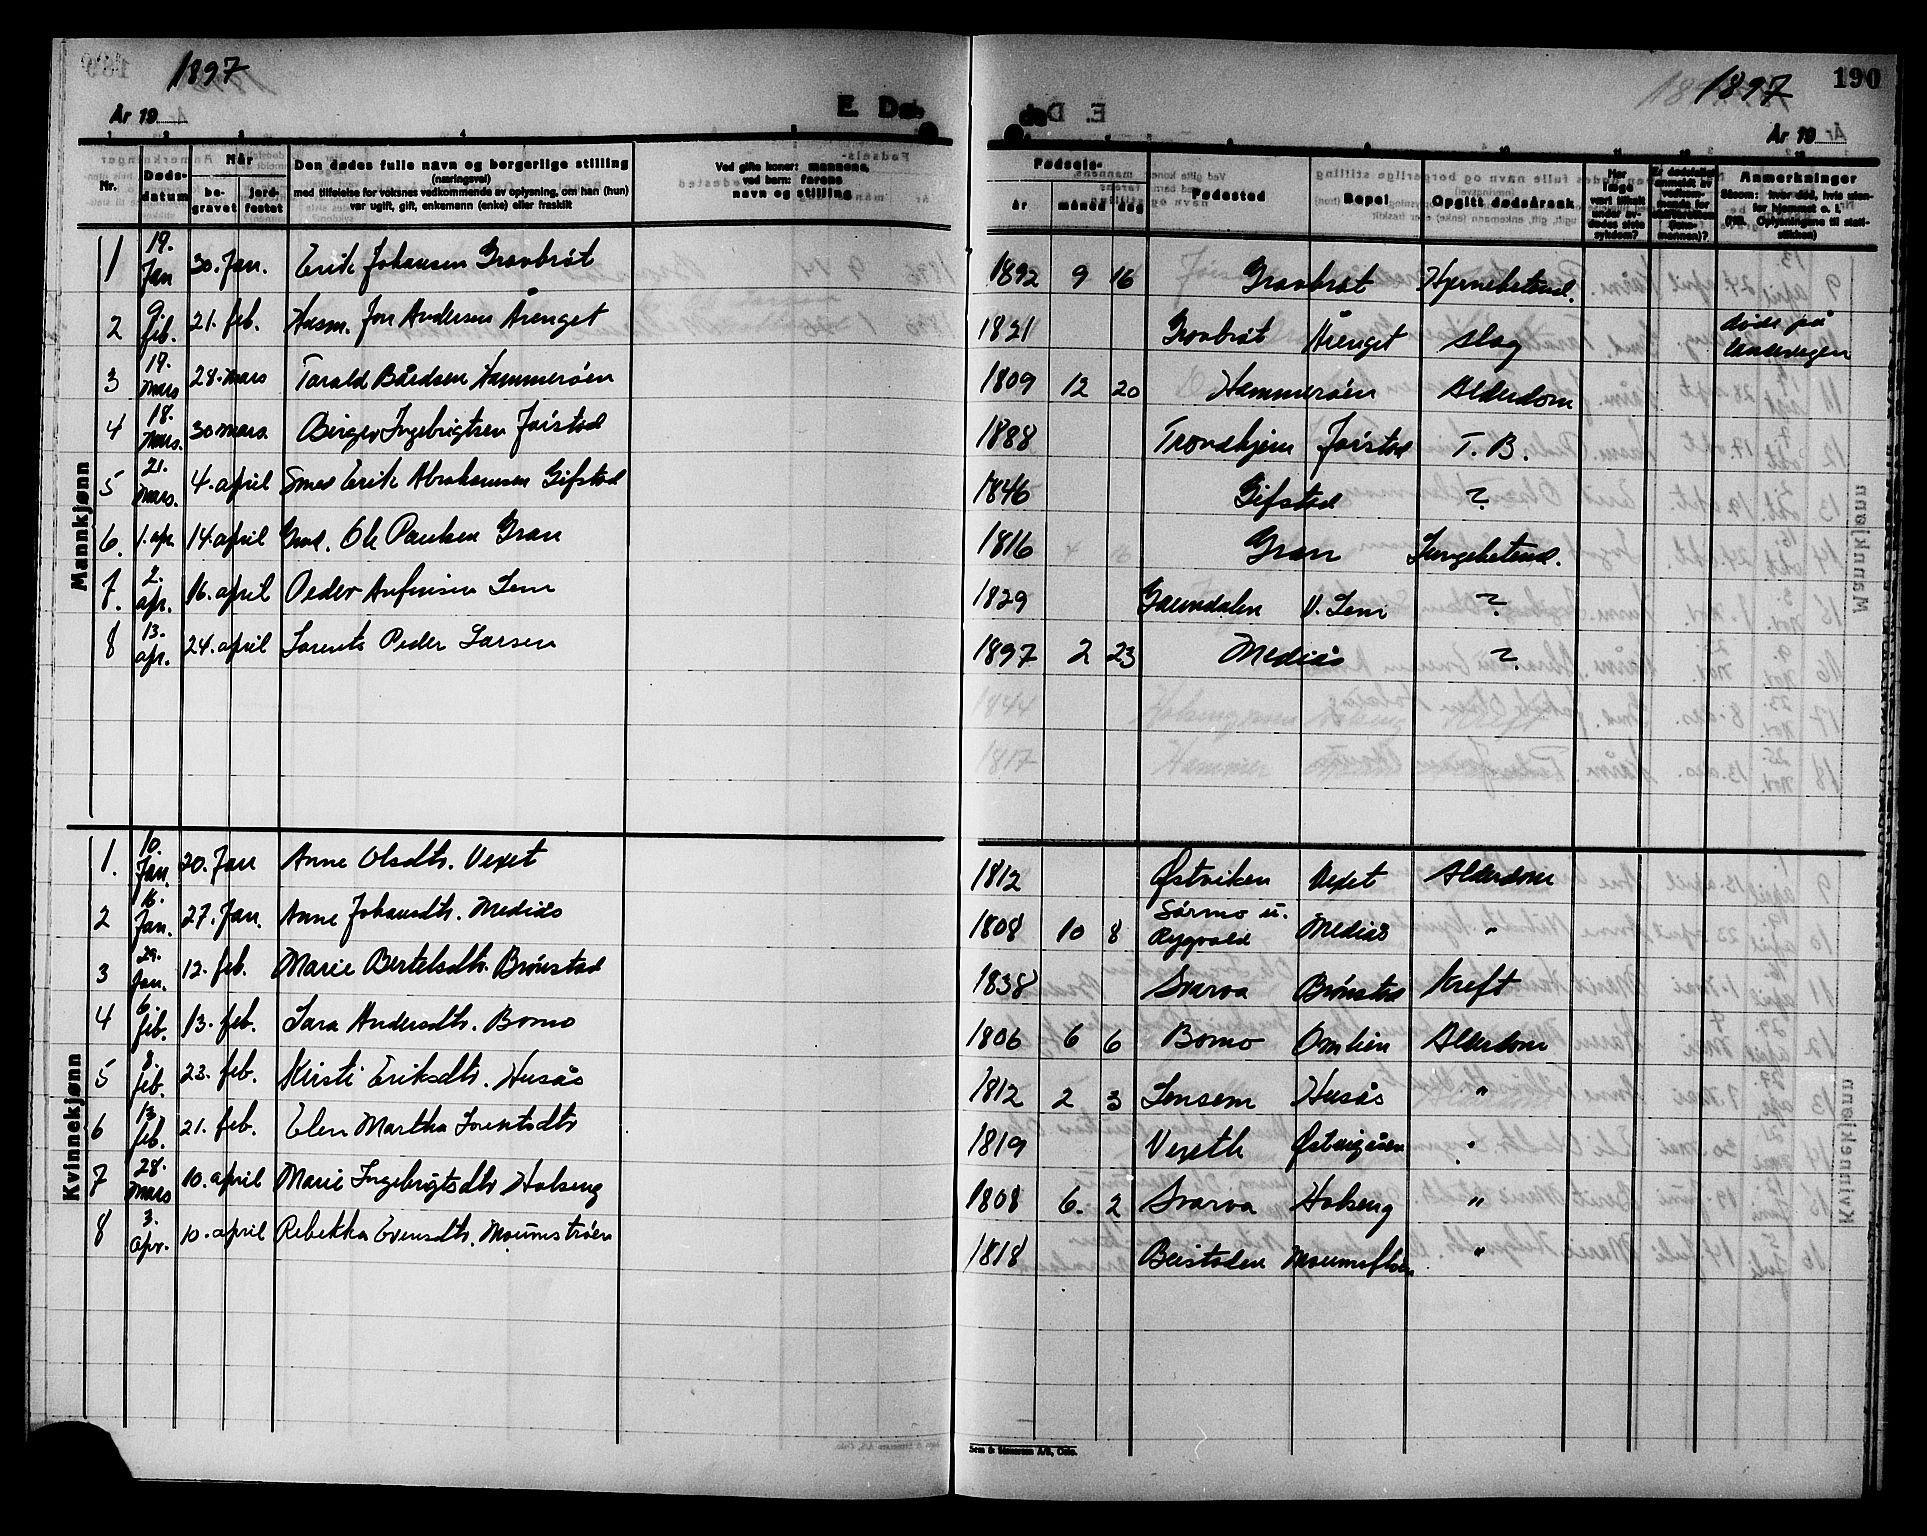 1897
År 19
E. Dø
1 2 3 4 5
Nr.
Døds-
datum
Når
be-
gravet
jord-
festet
Den dødes fulle navn og borgerlige stilling
(næringsvei)
med tilføielse for voksnes vedkommende av oplysning, om han (hun)
var ugift, gift, enkemann (enke) eller fraskilt
Ved gifte koner: mannens,
ved barn: farens
navn og stilling
Mannkjønn
1 19. Jan 30. Jan. Erik Johansen Gravbröt
2 9. feb. 21. feb. Husm. Jon Andersen Årenget
3 19. Mars 28. mars Tarald Bårdsen Hammeröen
4 18. Mars. 30 mars Birger Ingebrigtsen Jörstad
5 21. Mars. 4. april Smed Erik Abrahamsen Gifstad
6. 1. apr. 14. april Grd. Ole Paulsen Gran
7. 2. apr. 16. april Peder Anfinsen Lem
8 13. apr. 24. april Lorents Peder Larsen
Kvinnekjønn
1. 10. Jan. 20. Jan Anne Olsdtr. Vexet
2 16. Jan. 27. Jan. Anne Johansdtr. Mediås
3 29. Jan. 12. feb. Marie Bertelsdtr. Brönstad
4 6. feb. 13. feb. Sara Andersdtr. Bomo
5 8. feb. 23. feb. Kirsti Eriksdtr. Husås
6 13. feb. 21. feb. Elen Martha Lorentsdtr
7 28. Mars 10. april Marie Ingebrigtsdtr Holseng
8 3. apr. 10. april Rebekka Evensdtr.
1897 190
År 19
Fødsels-
år måned dag
Fødested
Bopel
Opgitt dødsårsak
Har
læge
vært tilkalt
under av-
dødes siste
sykdom?
Er dødsfallet
anmeldt av
vedkom-
mende for
skifteretten
(lens-
mannen)?
Anmerkninger
Såsom: hvor død, hvis uten-
for hjemmet o. l.
(NB. Oplysningene til stati-
stikken)
1892 9 16 Gravbröt Hjernebetend.
1821 Gravbröt Årenget slag döde på
1809 12 20 Hammeröen Alderdom
1888 Trondhjem Jörstad T. B.
1846 Gifstad ?
1816 Gran Lungebetend.
1829 Gaundalen V. Lem ?
1897 2 23 Mediås ?
1812 Østviken Vexet Alderdom
1808 10 8 Sörmo u. Mediås "
1838 Svarva Brönstad Kreft
1806 6 6 Bomo Omlien Alderdom
1812 2 3 Lensem Husås "
1819 Vexeth "
1808 6. 2 Svarva Holseng "
1818 Beistaden "
Sem & Stenersen A/S, Oslo.